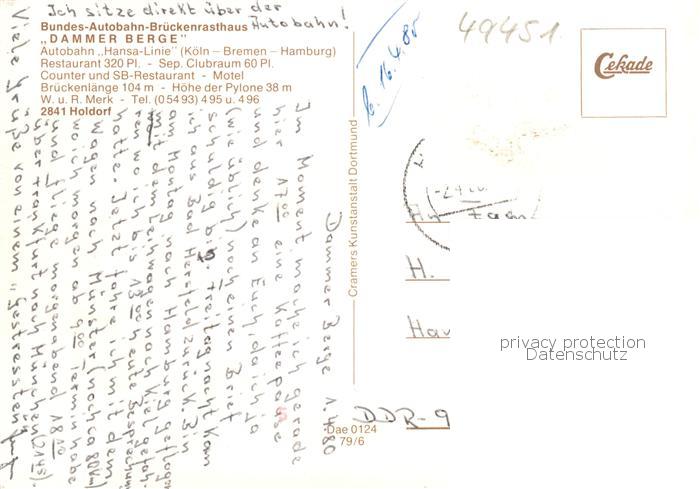 Ich sitze direkt über der
Autobahn!
Bundes-Autobahn-Brückenrasthaus
„DAMMER BERGE"
Autobahn „Hansa-Linie" (Köln – Bremen – Hamburg)
Restaurant 320 Pl. - Sep. Clubraum 60 Pl.
Counter und SB-Restaurant - Motel
Brückenlänge 104 m - Höhe der Pylone 38 m
W. u. R. Merk - Tel. (05493) 495 u. 496
2841 Holdorf
Dammer Berge 1.4.80
Im Moment mache ich gerade
hier 17⁰⁰ eine Kaffeepause
und denke an Euch, da ich ja
(wie üblich) noch einen Brief
schuldig bin. Freitagnacht kam
ich aus Bad Hersfeld zurück. Bin
am Montag nach Hamburg geflogen
mit dem Leihwagen nach Kiel gefah-
ren wo ich bis 13⁰⁰ heute Besprechung
hatte. Jetzt fahre ich mit dem
Wagen nach Münster (noch ca 80km)
wo ich morgen ab 9⁰⁰ Termin habe
und fliege morgen abend 18¹⁰
über Frankfurt nach München (21⁴⁵).
Viele Grüße von einem „gestressten"
Cramers Kunstanstalt Dortmund
Dae 0124
79/6
b. 16.4.80
49451
Cekade
H.
DDR-9
privacy protection
Datenschutz